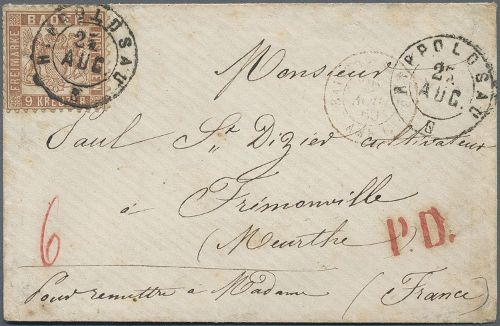 BADEN
FREIMARKE
9 KREUZER
RIPPOLDSAU
22
AUG
RIPPOLDSAU
22
AUG.
Monsieur
Paul St Dizier cultivateur
à Frémonville
(Meurthe)
P.D.
6
Pour remettre à Madame (France)